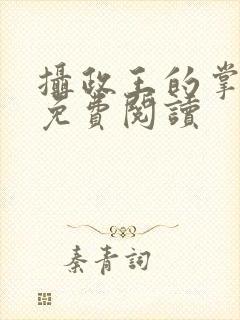 攝政王的掌
免費閱讀
秦青詞